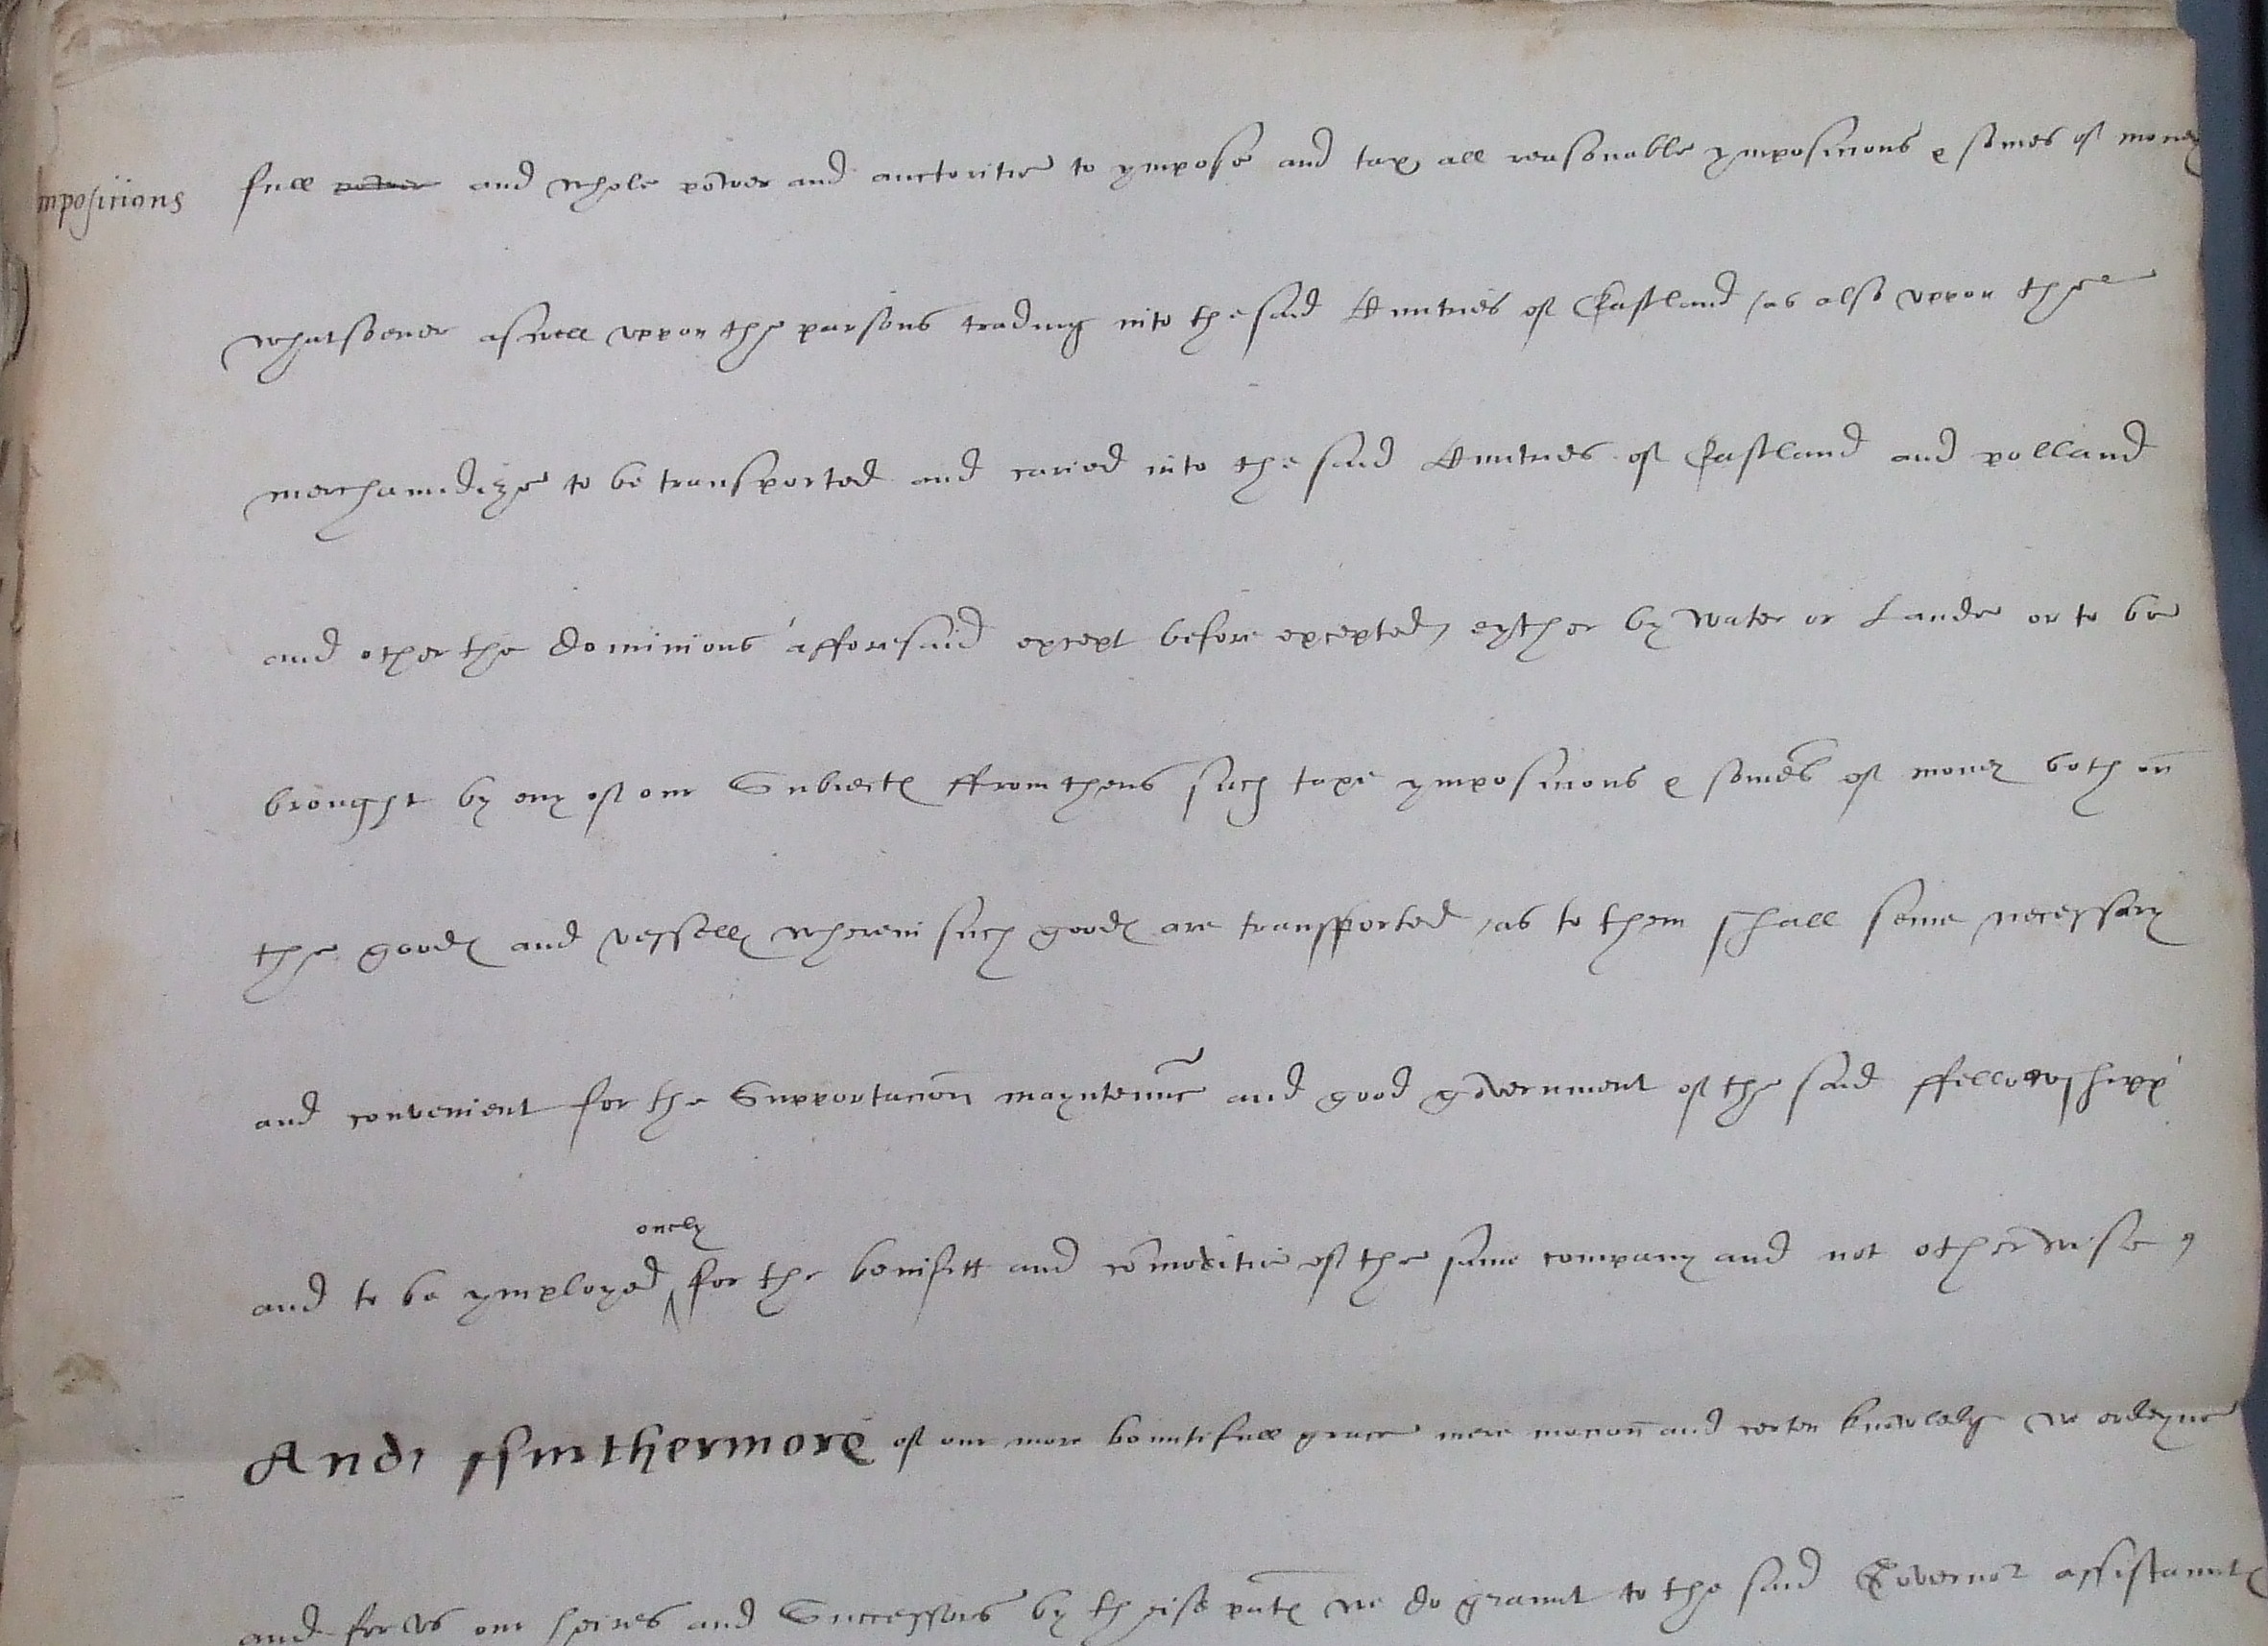 mposicions
full power and whole power and auctoritie to ympose and tax all reasonable ymposicions & somes of money
whatsoever aswell uppon the parsons trading into the said Cuntries of Eastland / as also uppon the
merchaundize to be transported and caried into the said Cuntries of Eastland and polland
and other the dominions afforesaid except before excepted, eyther by water or Lande or to be
brought by eny of our Subiectes ffrom thens such taxe ymposicions & somes of money both on
the goodes and vesselles wherein such goodes are transported / as to them shall seme necessary
and convenient for the Supportacion mayntenance and good government of the said ffellowshipp
onely
and to be ymployed ^ for the benifitt and comoditie of the same company and not otherwise,
And ffurthermore of our more bountifull grace mere mocion and certen knowledge we ordeyne
and for us our heires and Successors by theise pntes we do graunt to the said Governor assistauntes